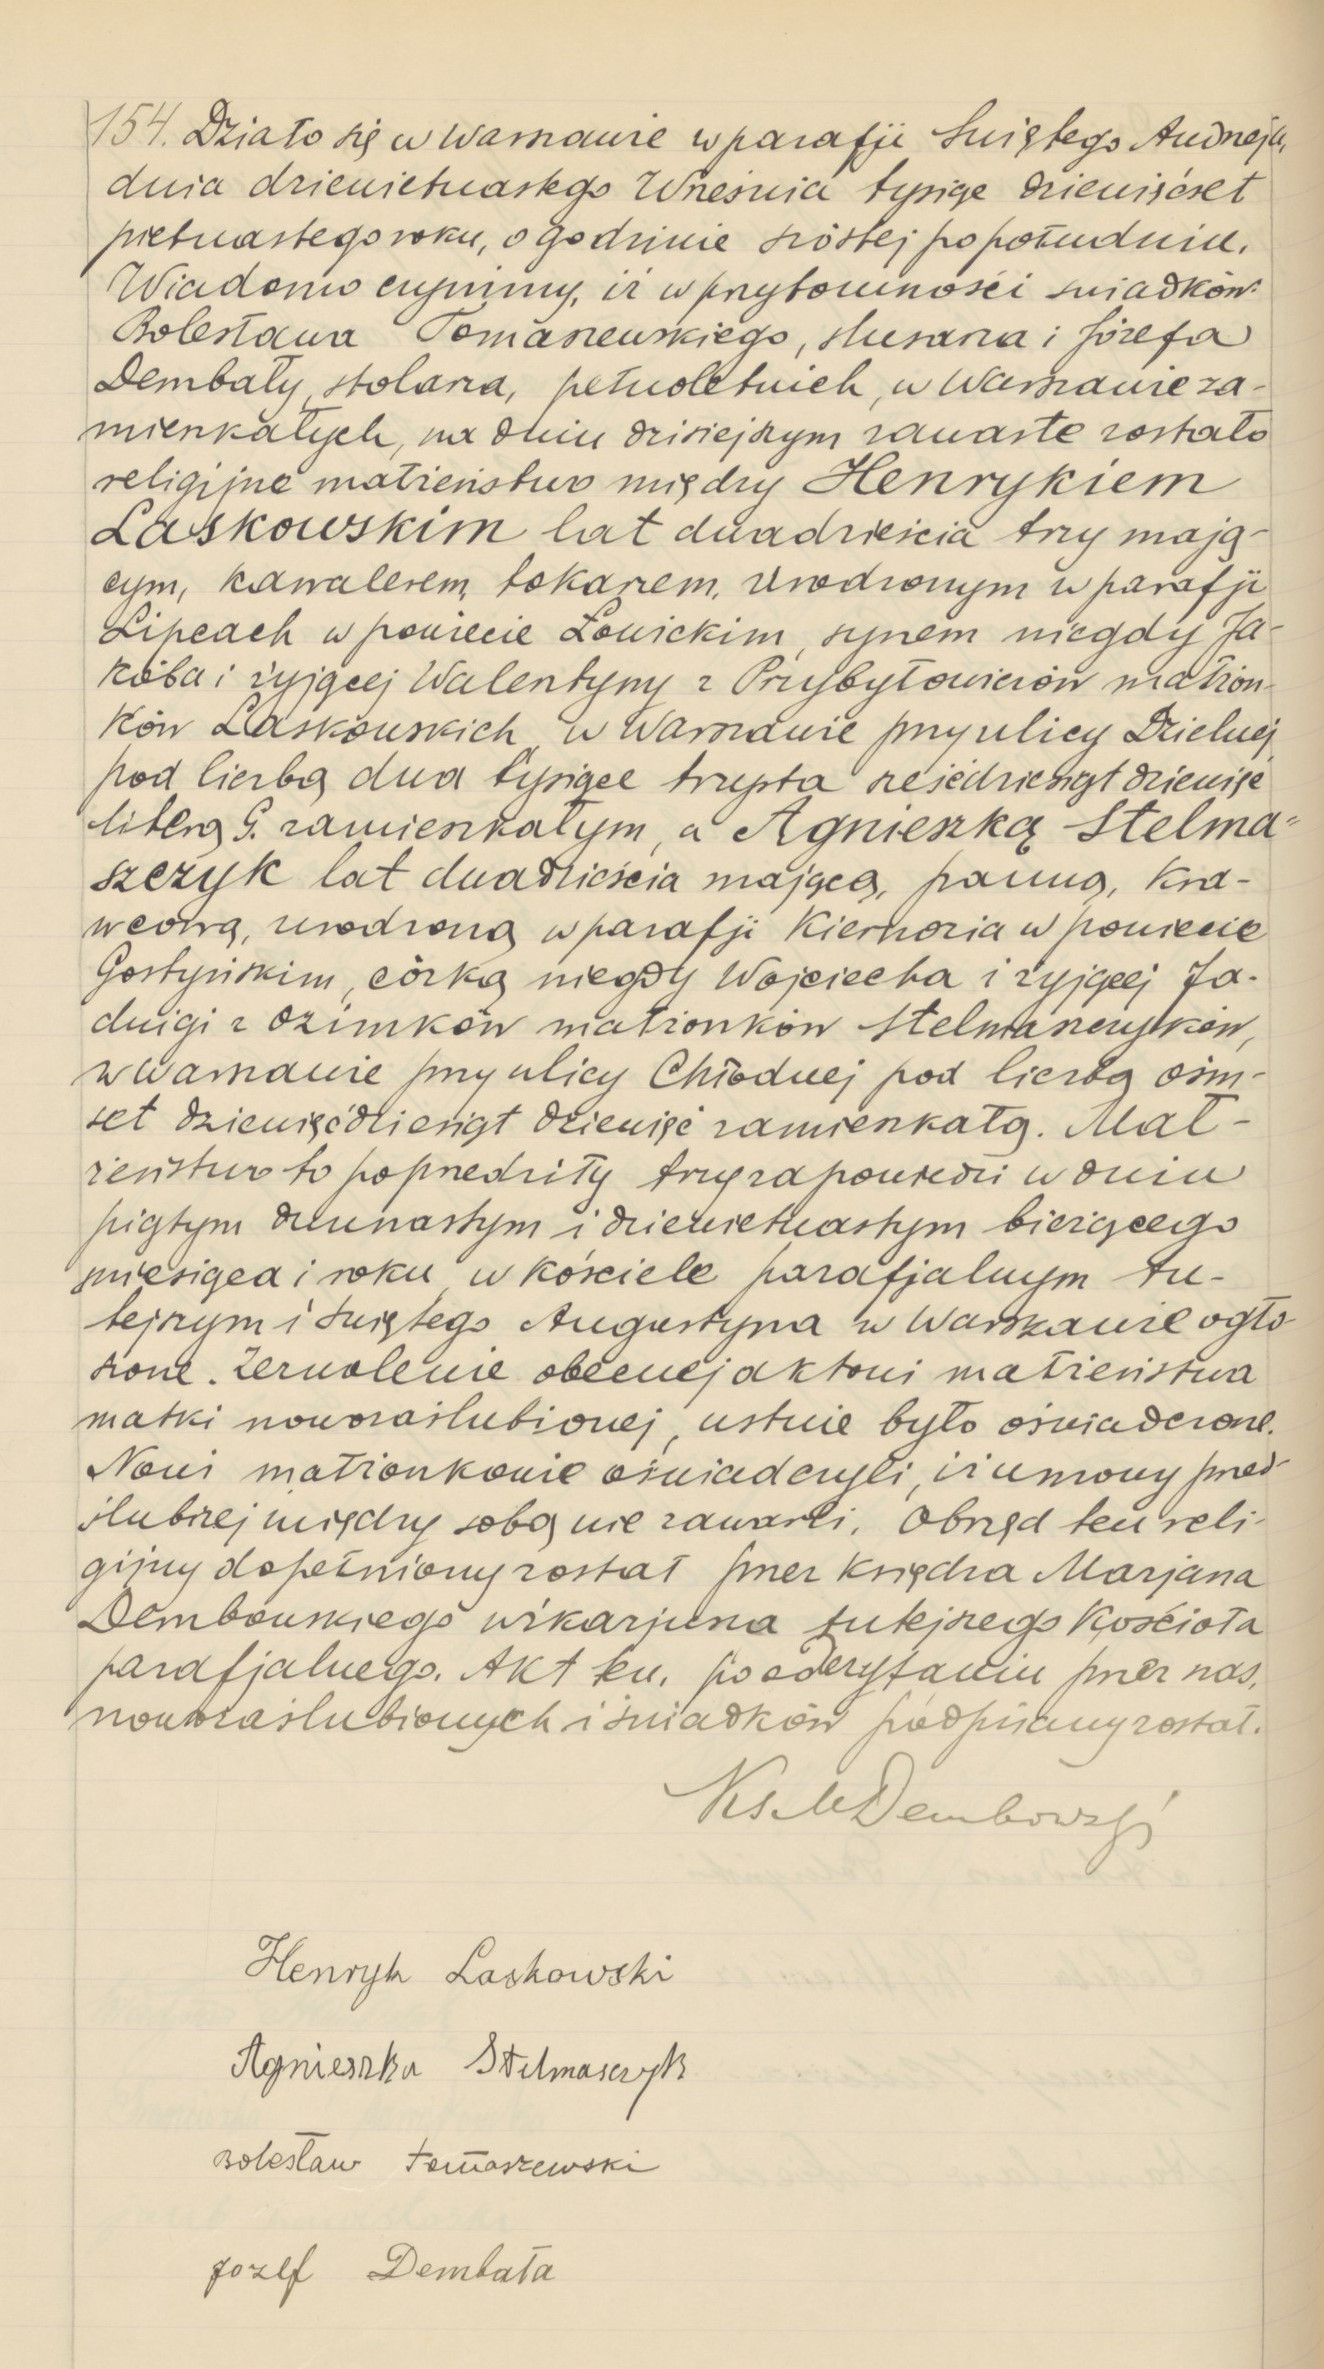 154. Działo się w Warszawie w parafji Świętego Andrzeja,
dnia dziewietnastego Września tysiąc dziewięćset
pietnastego roku, o godzinie szóstej popołudniu.
Wiadomo czynimy, iż w przytomności świadków:
Bolesława Tomaszewskiego, ślusarza i Józefa
Dembały, stolarza, pełnoletnich, w Warszawie za-
mieszkałych, na dniu dzisiejszym zawarte zostało
religijne małżeństwo między Henrykiem
Laskowskim lat dwadzieścia trzy mają-
cym, kawalerem, tokarzem, urodzonym w parafji
Lipcach w powiecie Łowickim, synem niegdy Ja-
kóba i żyjącej Walentyny z Przybyłowiczów małżon-
ków Laskowskich, w Warszawie przy ulicy Dzielnej
pod liczbą dwa tysiące trzysta sześćdziesiąt dziewięć
literą G. zamieszkałym, a Agnieszką Stelma-
szczyk lat dwadzieścia mającą, panną, kra-
wcową, urodzoną w parafji Kiernozia w powiecie
Gostyńskim, córką niegdy Wojciecha i żyjącej Ja-
dwigi z Ozimków małżonków Stelmaszczyków,
w Warszawie przy ulicy Chłodnej pod liczbą ośm-
set dziewięćdziesiąt dziewięć zamieszkałą. Mał-
żeństwo to poprzedziły trzy zapowiedzi w dniu
piątym dwunastym i dziewietnastym bieżącego
miesiąca i roku w kościele parafjalnym tu-
tejszym i Świętego Augustyna w Warszawie ogło-
szone. Zezwolenie obecnej aktowi małżeństwa
matki nowozaślubionej, ustnie było oświadczone.
Nowi małżonkowie oświadczyli, iż umowy przed-
ślubnej między sobą nie zawarli. Obrzęd ten reli-
gijny dopełniony został przez księdza Marjana
Dembowskiego wikarjusza tutejszego Kościoła
parafjalnego. Akt ten, po odczytaniu przez nas,
nowozaślubionych i świadków podpisany został.
Ks. M Dembowski
Henryk Laskowski
Agnieszka Stelmasczyk
Bolesław Tomaszewski
Jozef Dembała